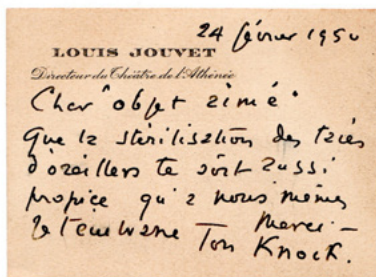 24 février 1950
LOUIS JOUVET
Directeur du Théâtre de l'Athénée
Cher "objet aimé"
Que la stérilisation des taies
d'oreillers te soit aussi
propice qu'à nous mêmes
Merci –
Je t'embrasse Ton Knock.